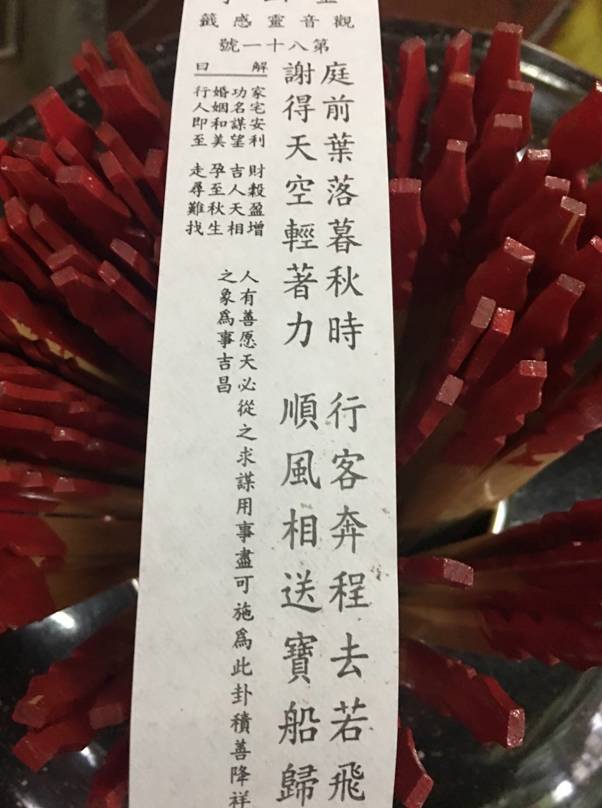 觀音靈感籤
第八十一號
庭前葉落暮秋時 行客奔程去若飛
謝得天空輕著力 順風相送寶船歸
解曰
家宅安利 財穀盈增
功名謀望 吉人天相
婚姻和美 孕至秋生
行人即至 走尋難找
人有善愿天必從之求謀用事盡可施爲此卦積善降祥
之象爲事吉昌